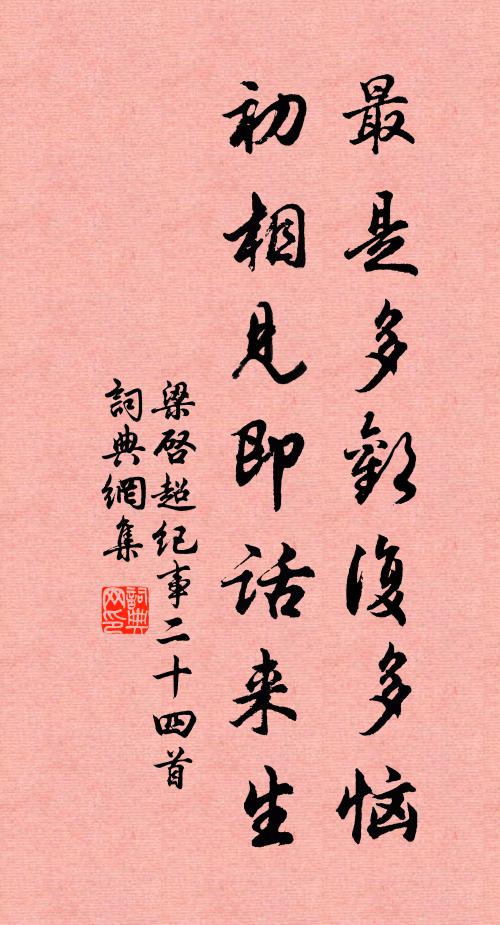 最是多歡復多恼
初相見即話来生
梁啓超纪事二十四首
詞典網集
詞典网印